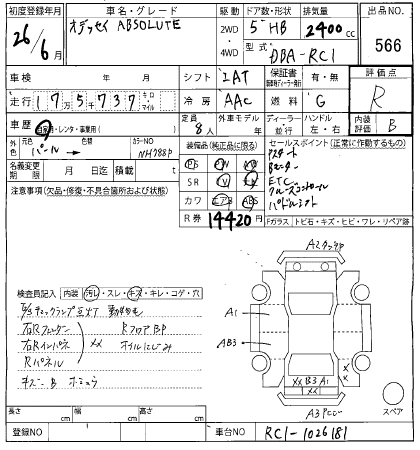 初度登録年月 車名・グレード 駆動 ドア数・形状 排気量 出品NO.
26年6月 オデッセイ ABSOLUTE 2WD 4WD 5 HB 2400cc 566
型式 DBA-RC1
車検 年 月 シフト LAT 保証書 有・無 評価点
走行 175737 キロ マイル 冷房 AAC 燃料 G R
車歴 自家用・レンタ・事業用( ) 定員 8人 外車モデル 年 ディーラー 並行 ハンドル 左・右 内装評価 B
外色 元色 パール → 色替 カラーNO NH788P 装備品(純正品に限る) セールスポイント(正常に作動するもの)
名義変更期限 月 日迄 積載 t PS PW AB
注意事項(欠品・修復・不具合箇所および状態) SR TV
ETC
カワ エアB ABS クルーズコントロール
R券 14420円 パドルシフト
Fガラス トビ石・キズ・ヒビ・フレ・リペア跡
A2
検査員記入 内装 汚れ・スレ・キズ・キレ・コゲ・穴
A1
AB3
右Rフェンダー Rフロア BP
右Rインパネ XX オイルにじみ
Rパネル
XX B3 A1
XX
A3
キズ B
スペア
長さ cm 幅 cm 高さ cm
登録NO 車台NO RC1-1026181